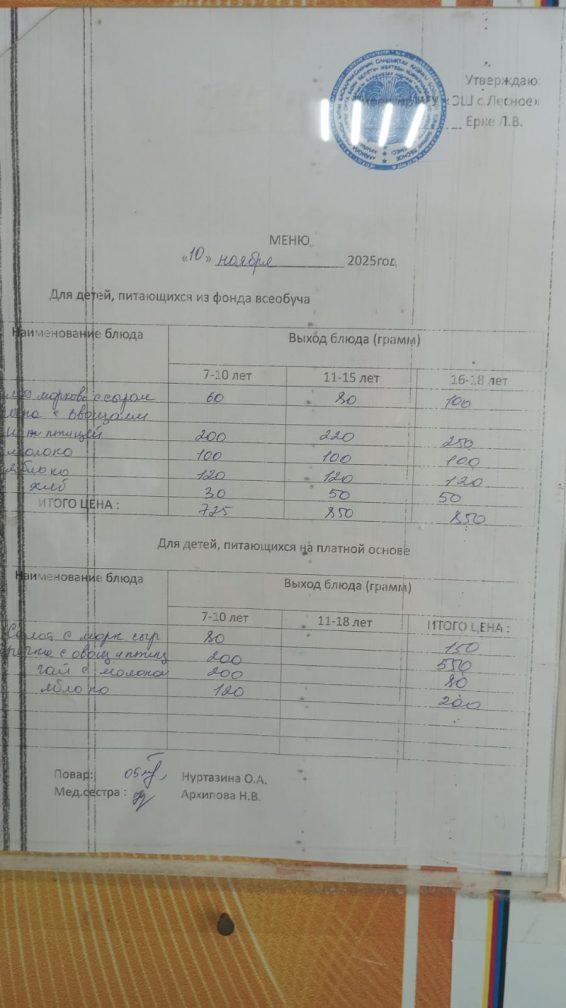 Утверждаю:
ОШ с.Лесное»
Ерке Л.В.
МЕНЮ
«10» ноября 2025год
Для детей, питающихся из фонда всеобуча
Наименование блюда Выход блюда (грамм)
7-10 лет 11-15 лет 16-18 лет
с сыром 60 80 100
с овощами
и птицей 200 220 250
молоко 100 100 100
яблоко 120 120 120
хлб 30 50 50
ИТОГО ЦЕНА : 725 850 850
Для детей, питающихся на платной основе
Наименование блюда Выход блюда (грамм)
7-10 лет 11-18 лет ИТОГО ЦЕНА :
Салат с морк сыр 80 150
с овощ и птиц 200 550
чай с молоком 200 80
яблоко 120 200
Повар: Нуртазина О.А.
Мед.сестра : Архипова Н.В.